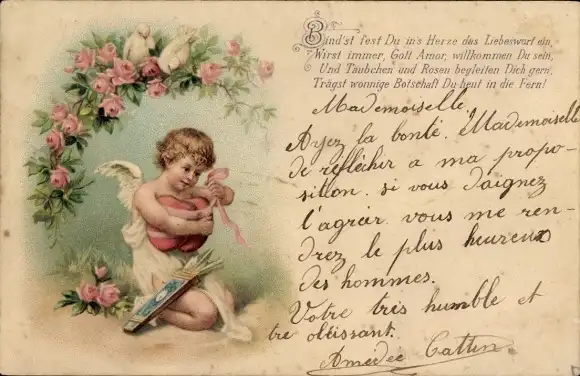 Bind'st fest Du in's Herze das Liebeswort ein,
Wirst immer, Gott Amor, willkommen Du sein,
Und Täubchen und Rosen begleiten Dich gern,
Trägst wonnige Botschaft Du heut in die Fern!
Mademoiselle,
Ayez la bonté. Mademoiselle
de réflechir a ma propo-
sition. si vous daignez
l'agréer vous me ren-
drez le plus heureux
des hommes.
Votre très humble et
tre obéissant.
Amédée Cattin